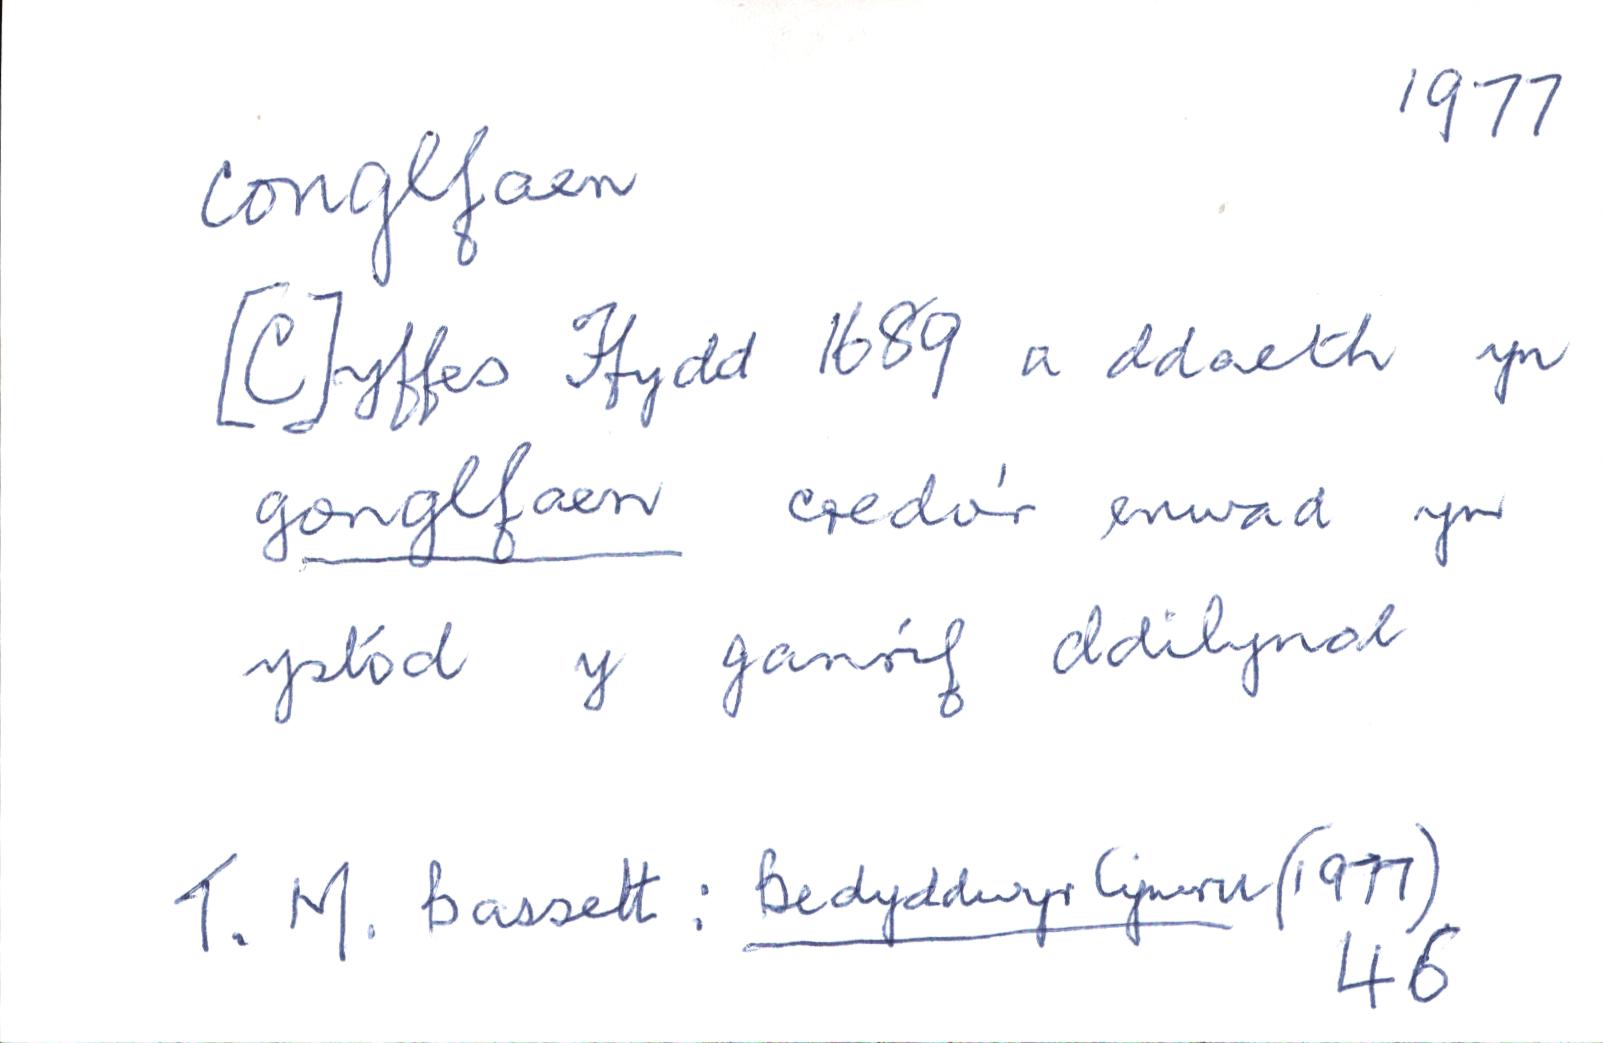 1977
conglfaen
[C]yffes Ffydd 1689 a ddaeth yn
gonglfaen credo'r enwad yn
ystod y ganrif ddilynol
T. M. Bassett : Bedyddwyr Cymru (1977)
46